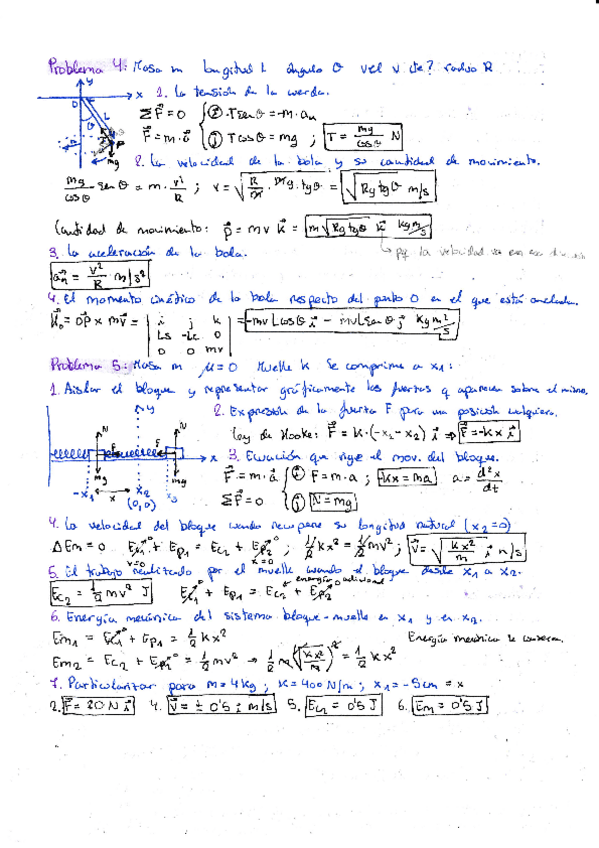 Problema 4: Masa m longitud L ángulo θ vel v cte? radio R
1. La tensión de la cuerda.
ΣF=0 { ⓘ -T senθ = -m·aₙ
F⃗=m·a⃗ ⓙ T cosθ = mg ; T = mg/cosθ N
2. La velocidad de la bola y su cantidad de movimiento.
mg/cosθ · senθ = m · v²/R ; v = √(R/m · mg·tgθ) = √(Rg tgθ) m/s
Cantidad de movimiento: p⃗ = mv k⃗ = m√(Rg tgθ) k⃗ kg m/s
pq la velocidad va en esa
3. La aceleración de la bola.
a⃗ₙ = v²/R m/s²
4. El momento cinético de la bola respecto del punto O en el que está anclada.
H⃗₀ = OP⃗ × mv⃗ = | i j k | = -mv L cosθ i⃗ - mv L senθ j⃗ kg m²/s
Ls -Lc 0
0 0 mv
Problema 5: Masa m μ=0 Muelle k Se comprime a x₁:
1. Aislar el bloque y representar gráficamente las fuerzas q aparecen sobre el mismo.
2. Expresión de la fuerza F para una posición cualquiera.
Ley de Hooke: F⃗ = k·(-x₁-x₂) i⃗ ⇒ F⃗ = -k x i⃗
3. Ecuación que rige el mov. del bloque.
F⃗ = m·a⃗ { ⓘ F = m·a ; -kx = ma a = d²x/dt
ΣF⃗=0 ⓙ N = mg
y x N N F F mg mg -x₁ x x₂ (0,0) x₃
4. La velocidad del bloque cuando recupera su longitud natural (x₂=0)
ΔEm=0 Ec₁ + Ep₁ = Ec₂ + Ep₂ ; 1/2 kx² = 1/2 mv² ; v⃗ = √(kx²/m) i⃗ m/s
v=0 x=0
5. El trabajo realizado por el muelle cuando el bloque desde x₁ a x₂.
Ec₂ = 1/2 mv² J Ec₁ + Ep₁ = Ec₂ + Ep₂
6. Energía mecánica del sistema bloque-muelle en x₁ y en x₂.
Em₁ = Ec₁ + Ep₁ = 1/2 kx² Energía mecánica se conserva.
Em₂ = Ec₂ + Ep₂ = 1/2 mv² → 1/2 m(√(kx²/m))² = 1/2 kx²
7. Particularizar para m=4kg ; k=400 N/m ; x₁=-5cm = x
2. F⃗ = 20 N i⃗ 4. v⃗ = ± 0'5 i m/s 5. Ec₂ = 0'5 J 6. Em = 0'5 J